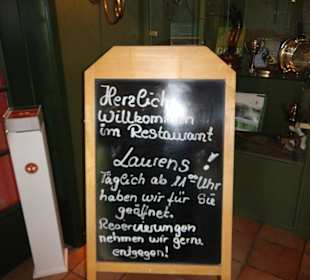 Herzlich
Willkommen
im Restaurant
Laurens!
Täglich ab 11ºº Uhr
haben wir für Sie
geöffnet.
Reservierungen
nehmen wir gerne
entgegen!